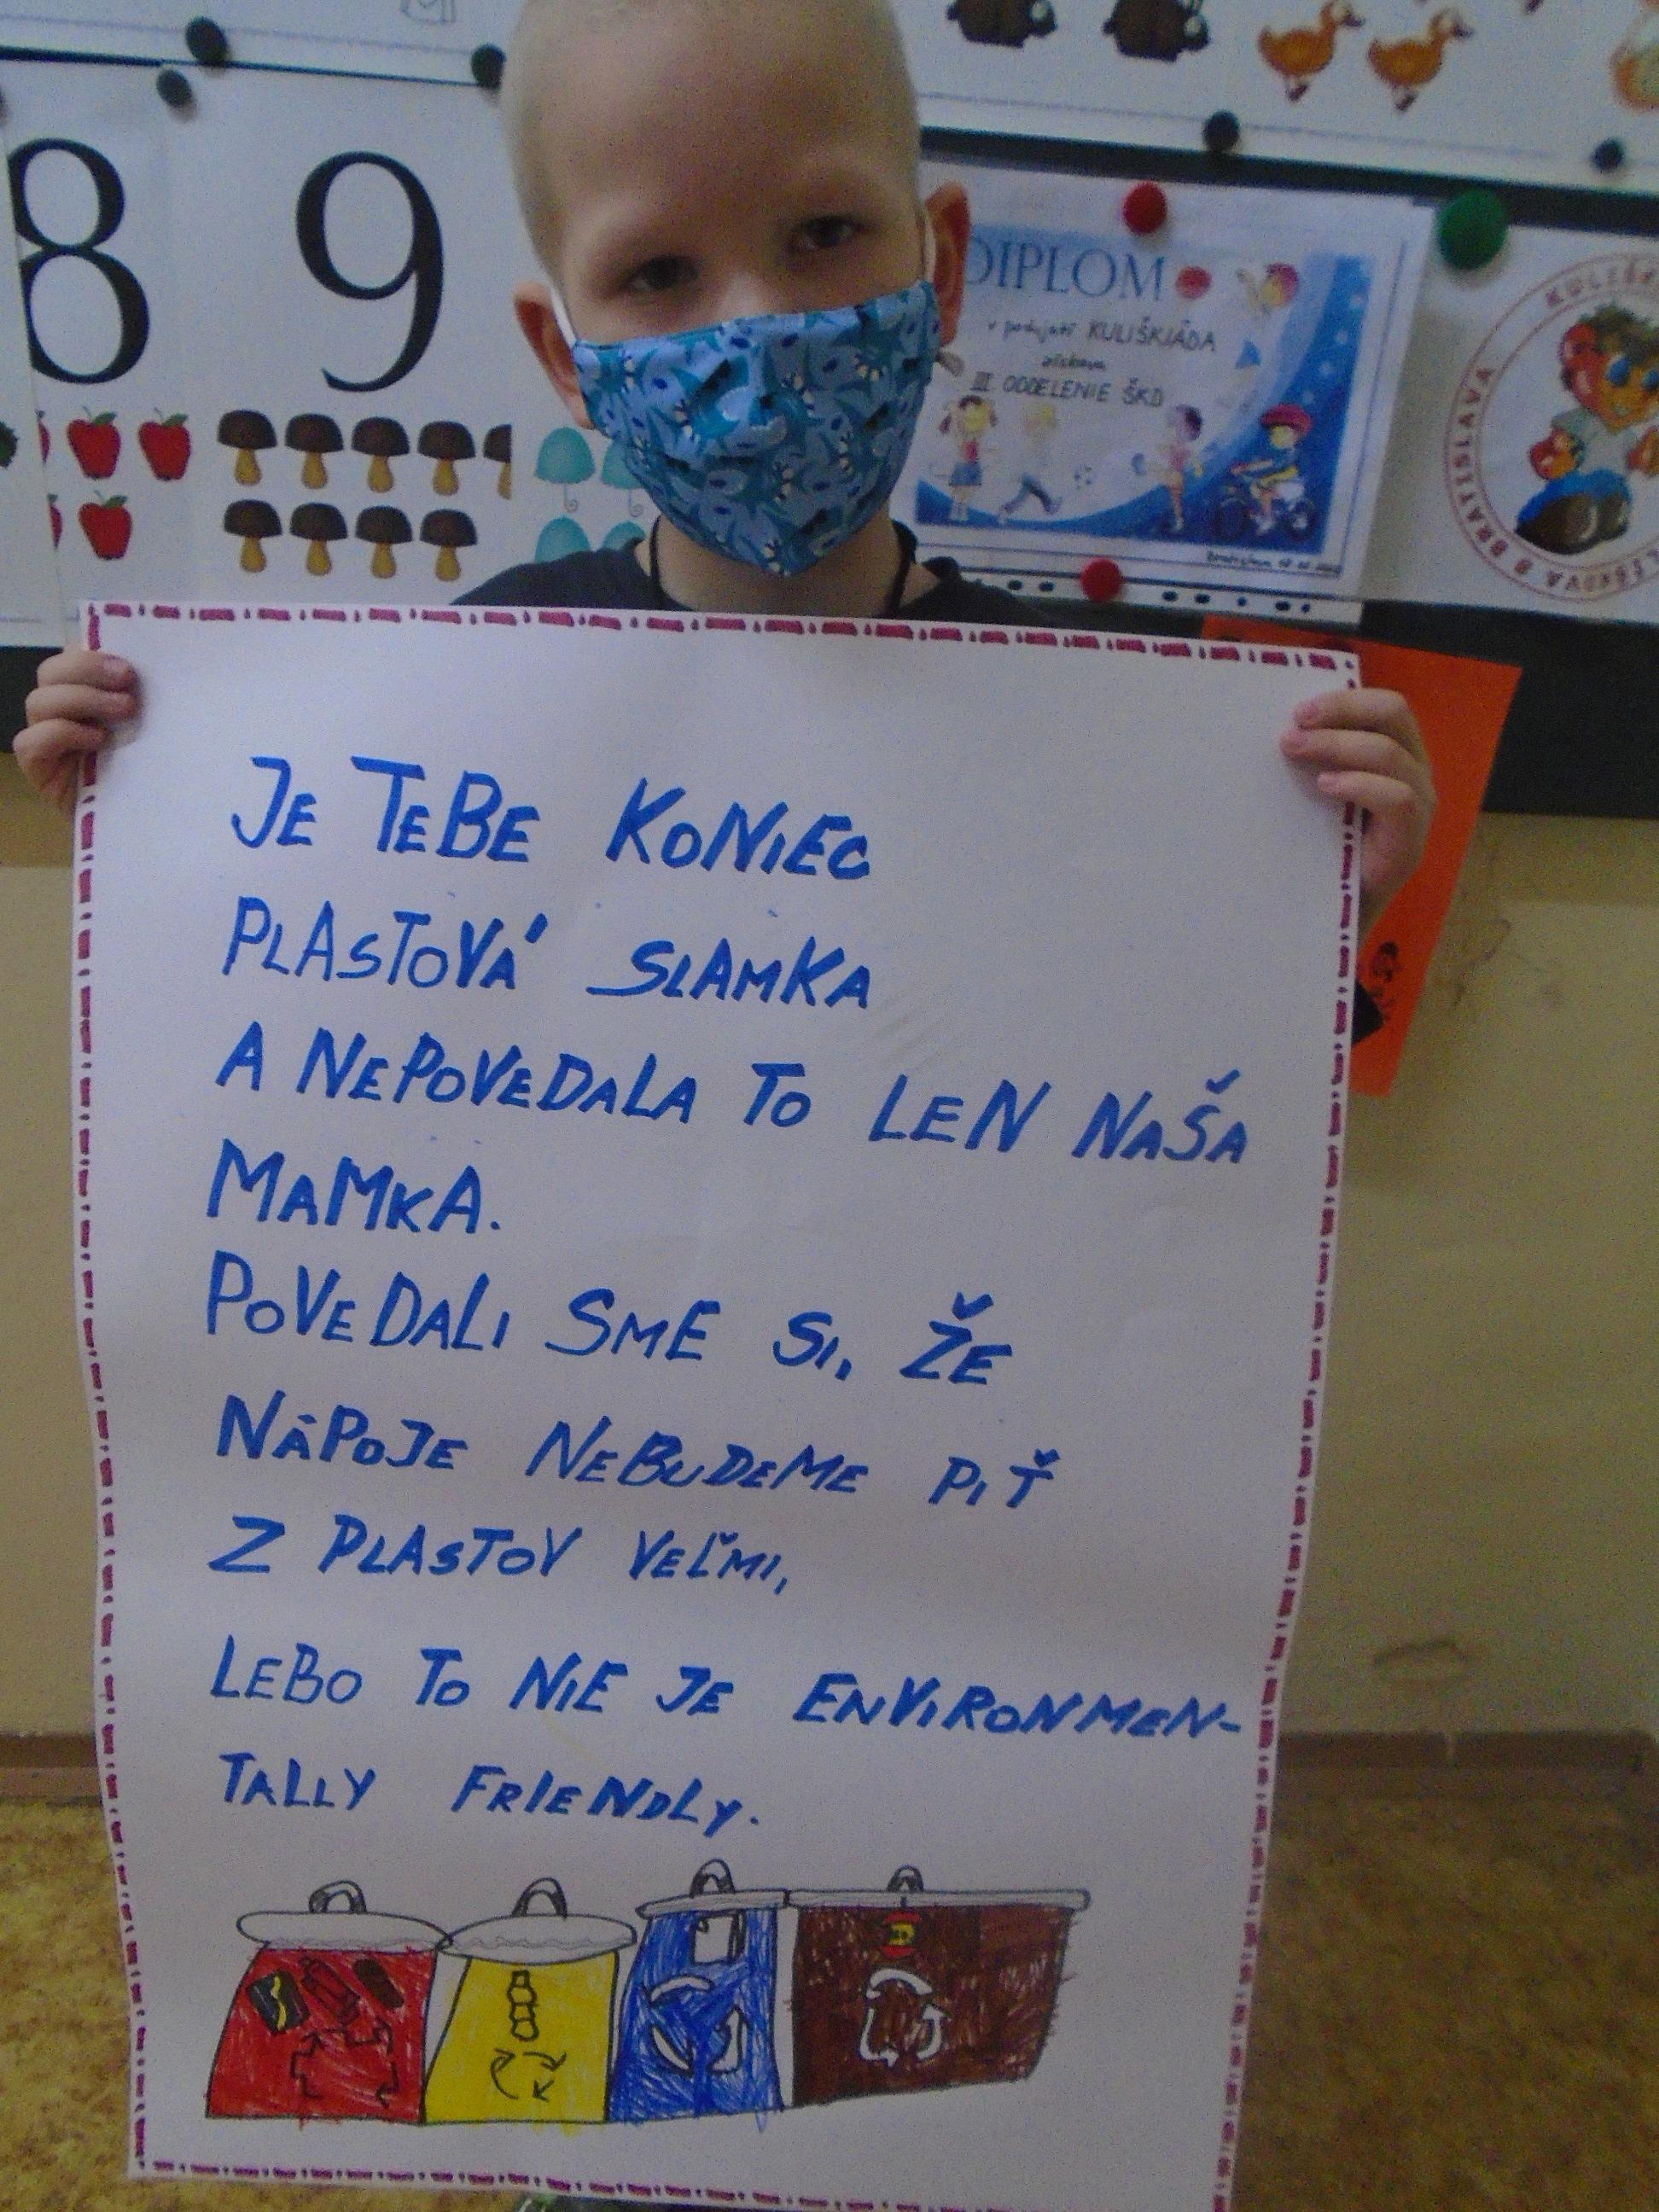 8 9
DIPLOM
v podujatí KULIŠKIÁDA
získava
III. ODDELENIE ŠKD
BRATISLAVA
JE TEBE KONIEC
PLASTOVÁ SLAMKA
A NEPOVEDALA TO LEN NAŠA
MAMKA.
POVEDALI SME SI, ŽE
NÁPOJE NEBUDEME PIŤ
Z PLASTOV VEĽMI,
LEBO TO NIE JE ENVIRONMEN-
TALLY FRIENDLY.